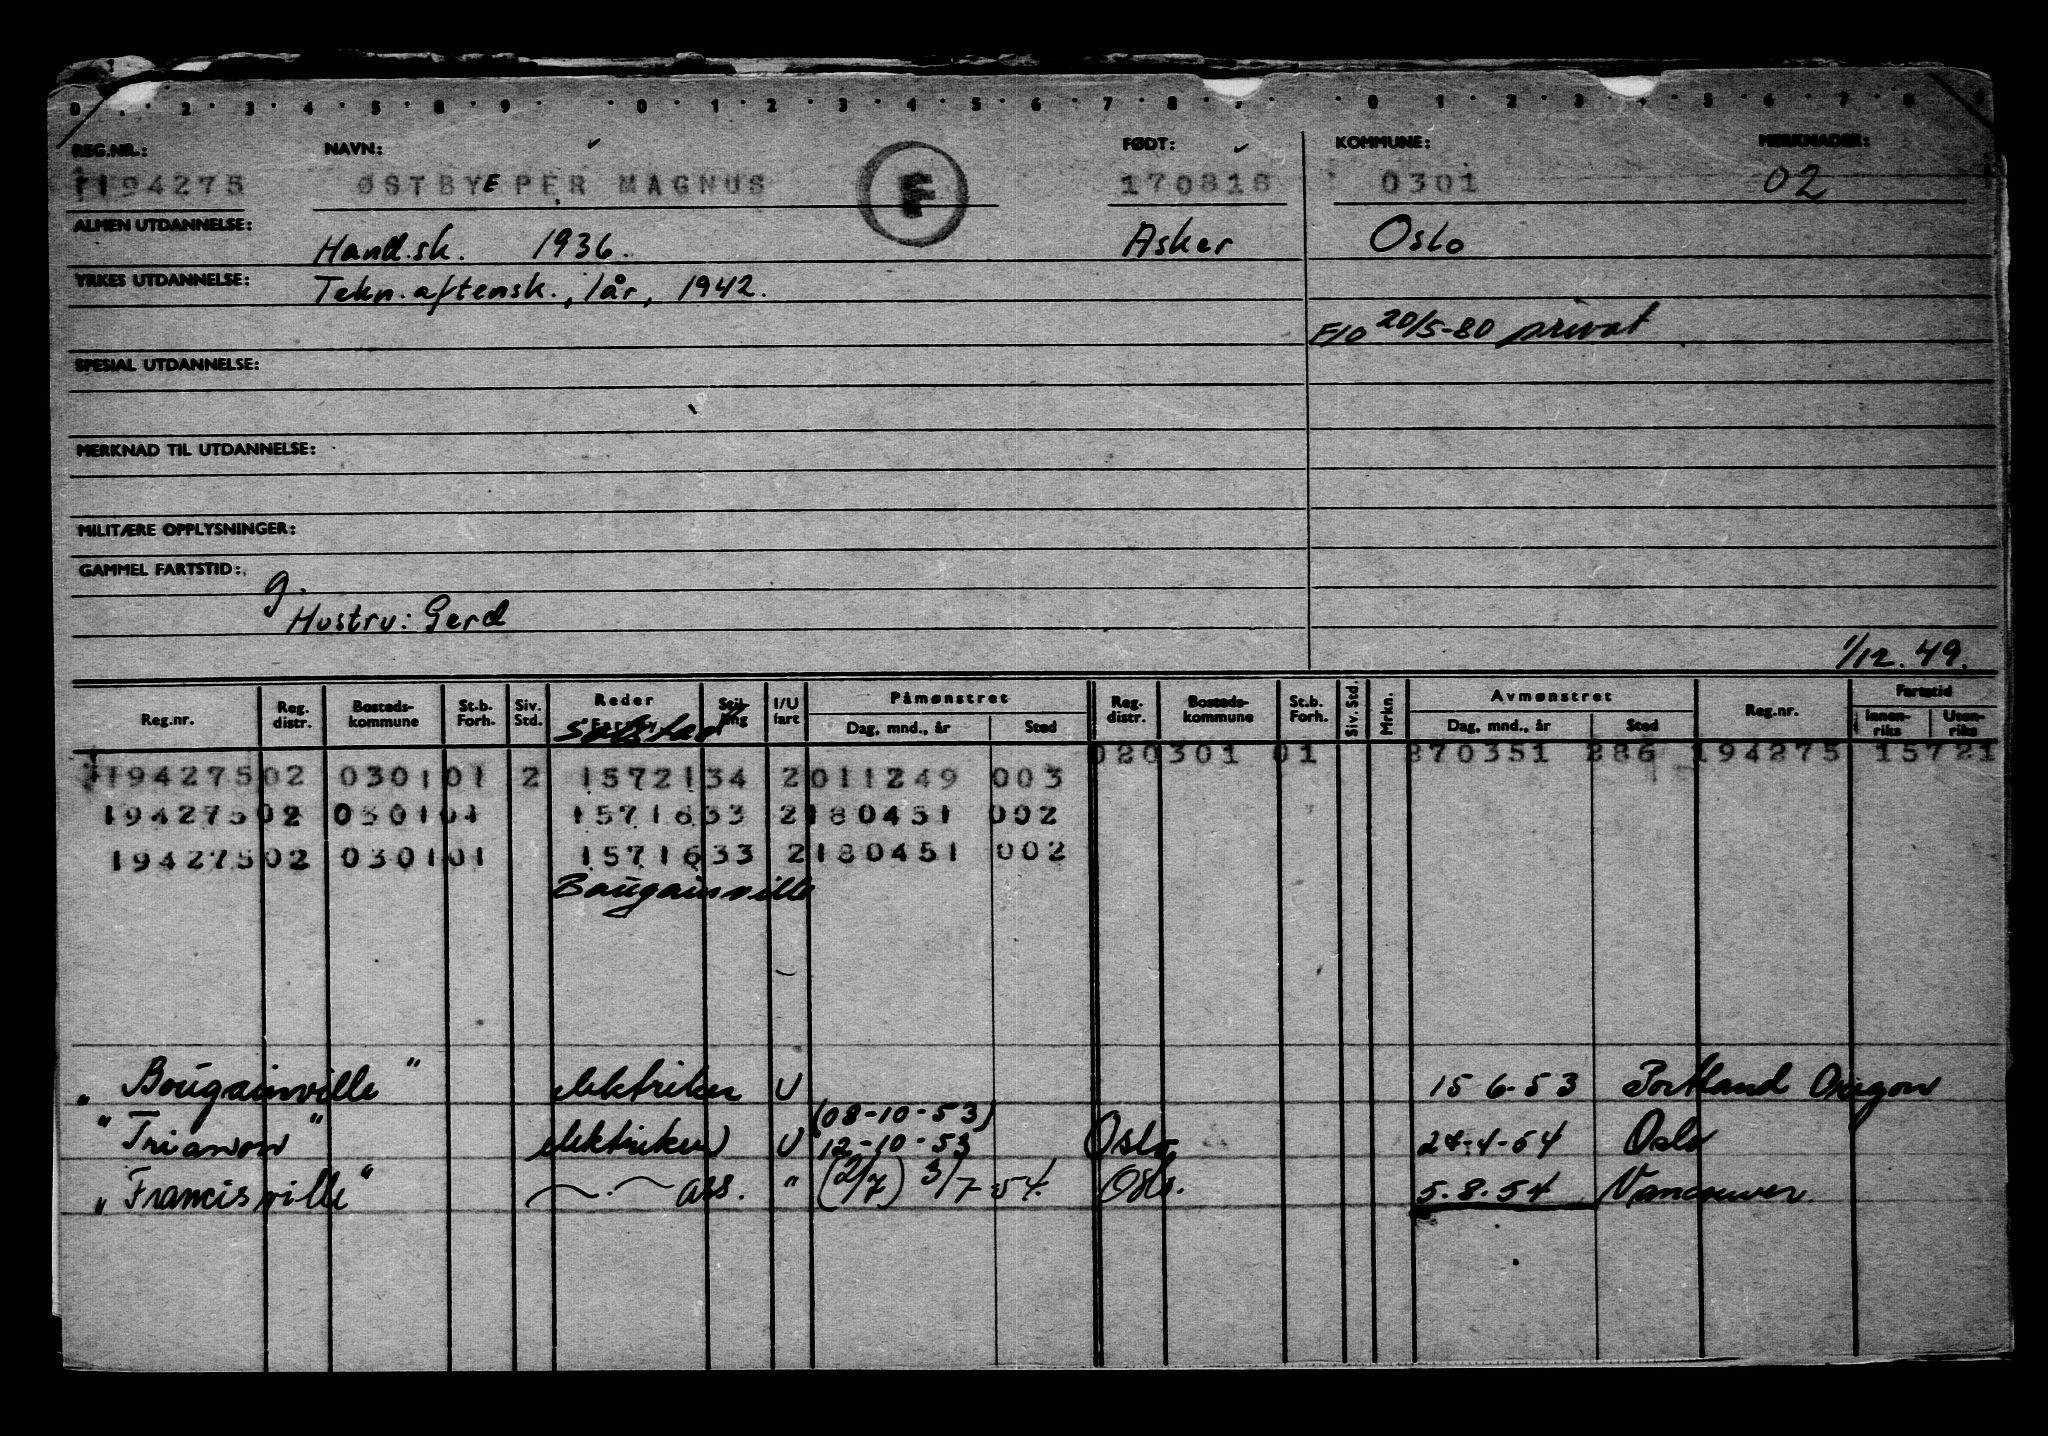 0 . . 2 . 3 . 4 . 5 . 8 . 9 . . 0 . 1 . 2 . 3 . 4 . 5 . 6 . 7 . 8 . . 0 . 1 . 2 . 3 . . 5 . 6 . 7 . 8 . 9
REG.NR.: NAVN: FØDT: KOMMUNE: MERKNADER:
1194275 ØSTBYE PER MAGNUS F 170818 0301 02
ALMEN UTDANNELSE: Hand.sk. 1936. Asker Oslo
YRKES UTDANNELSE: Tekn. aftensk., 1 år, 1942.
F/O 20/5-80 privat
SPESIAL UTDANNELSE:
MERKNAD TIL UTDANNELSE:
MILITÆRE OPPLYSNINGER:
GAMMEL FARTSTID:
g.
Hustru: Gerd
1/12. 49.
Reg.nr. Reg. distr. Bosteds-kommune St.b. Forh. Siv. Std. Reder Fartøy Stilling I/U fart Påmønstret Dag, mnd., år Sted Reg. distr. Bosteds-kommune St.b. Forh. Siv. Std. Mrkn. Avmønstret Dag, mnd., år Sted Reg.nr. Fartstid Innen-riks Uten-riks
020301 01 270351 286 194275 15721
1194275 02 0301 01 2 15721 34 2 011249 003
194275 02 0301 01 15716 33 2 180451 002
194275 02 0301 01 15716 33 2 180451 002
Bougainville
"Bougainville" elektriker U 15 6-53 Portland Oregon
(08-10-53)
"Trianon" elektriker U 12-10-53 Oslo 24-4-54 Oslo
"Francisville" — . — ass. " (2/7) 3/7-54. Oslo. 5.8.54 Vancouver.